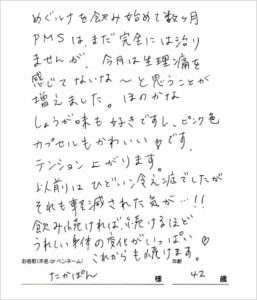 めぐルナを飲み始めて数ヶ月
PMSは、まだ完全には治り
ませんが、今月は生理痛を
感じてないな〜と思うことが
増えました。ほのかな
しょうが味も好きですし、ピンク色
カプセルもかわいい♡です。
テンション上がります。
以前はひどい冷え症でしたが
それも軽減された気が…!!
飲み続ければ、続けるほど
うれしい身体の変化がいっぱい♡
これからも続けます。
お名前(本名 or ペンネーム)
年齢
たかぽん 様 42 歳